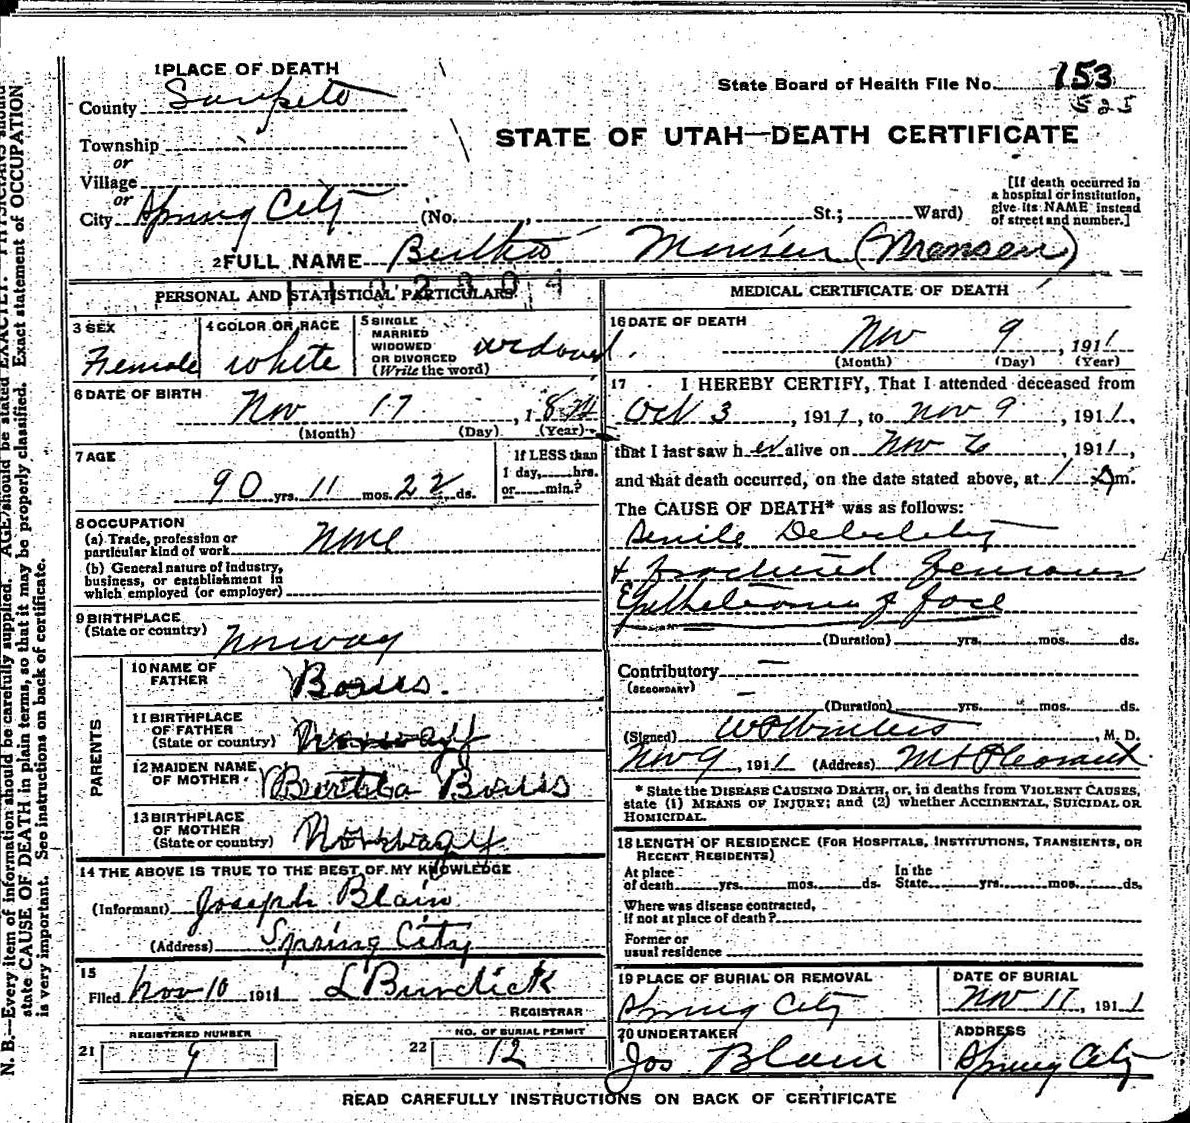 1 PLACE OF DEATH
County Sanpete
State Board of Health File No. 153
525
Township
or
Village
or
City Spring City (No. , St.; Ward)
STATE OF UTAH—DEATH CERTIFICATE
[If death occurred in
a hospital or institution,
give its NAME instead
of street and number.]
2 FULL NAME Bertha Monsen (Monsen)
PERSONAL AND STATISTICAL PARTICULARS
3 SEX
Female
4 COLOR OR RACE
White
5 SINGLE
MARRIED
WIDOWED
OR DIVORCED
(Write the word)
widowed.
6 DATE OF BIRTH
Nov 17 , 1
(Month) (Day) (Year)
7 AGE
90 yrs. 11 mos. 22 ds.
If LESS than
1 day, hrs.
or min.?
8 OCCUPATION
(a) Trade, profession or
particular kind of work None
(b) General nature of industry,
business, or establishment in
which employed (or employer)
9 BIRTHPLACE
(State or country) Norway
PARENTS
10 NAME OF
FATHER
11 BIRTHPLACE
OF FATHER
(State or country) Norway
12 MAIDEN NAME
OF MOTHER Bertha
13 BIRTHPLACE
OF MOTHER
(State or country) Norway
14 THE ABOVE IS TRUE TO THE BEST OF MY KNOWLEDGE
(Informant) Joseph Blain
(Address) Spring City
15
Filed Nov 10 1911 L Burdick
REGISTRAR
REGISTERED NUMBER
21 9
NO. OF BURIAL PERMIT
22 12
MEDICAL CERTIFICATE OF DEATH
16 DATE OF DEATH
Nov 9 , 1911
(Month) (Day) (Year)
17 I HEREBY CERTIFY, That I attended deceased from
Oct 3 , 1911, to Nov 9 , 1911,
that I last saw her alive on Nov 6 , 1911,
and that death occurred, on the date stated above, at 1 m.
The CAUSE OF DEATH* was as follows:
Senile Debility
& fractured Femur
Epithelioma of face
(Duration) yrs. mos. ds.
Contributory
(SECONDARY)
(Duration) yrs. mos. ds.
(Signed) W P Winters , M. D.
Nov 9 , 1911 (Address) Mt Pleasant
* State the DISEASE CAUSING DEATH, or, in deaths from VIOLENT CAUSES,
state (1) MEANS OF INJURY; and (2) whether ACCIDENTAL, SUICIDAL OR
HOMICIDAL.
18 LENGTH OF RESIDENCE (FOR HOSPITALS, INSTITUTIONS, TRANSIENTS, OR
RECENT RESIDENTS)
At place
of death yrs. mos. ds.
In the
State yrs. mos. ds.
Where was disease contracted,
if not at place of death?
Former or
usual residence
19 PLACE OF BURIAL OR REMOVAL
Spring City
DATE OF BURIAL
Nov 11, 1911
20 UNDERTAKER
Jos Blain
ADDRESS
Spring City
READ CAREFULLY INSTRUCTIONS ON BACK OF CERTIFICATE
N. B.—Every item of information should be carefully supplied. AGE should be stated EXACTLY. PHYSICIANS should
state CAUSE OF DEATH in plain terms, so that it may be properly classified. Exact statement of OCCUPATION
is very important. See instructions on back of certificate.